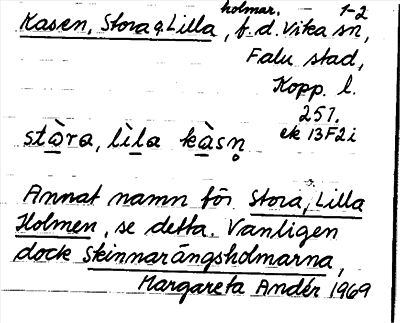 holmar. 1-2
Kasen, Stora & Lilla, f.d. Vika sn,
Falu stad,
Kopp. l.
257.
ek 13F2i
stàra, lìla kàsn̥
Annat namn för Stora, Lilla
Holmen, se detta. Vanligen
dock Skinnarängsholmarna,
Margareta Andér 1969